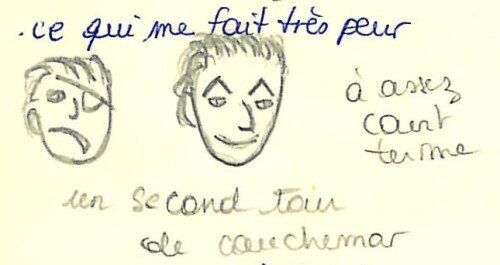 .ce qui me fait très peur
à assez
court
terme
un second tour
de cauchemar